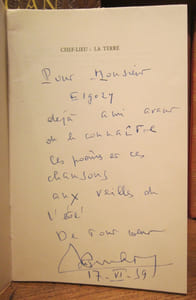 CHEF-LIEU : LA TERRE
Pour Monsieur
Elgozy
déjà ami avant
de le connaître
ces poèmes et ces
chansons
aux veilles de
l'été
De tout cœur
17-VI-59